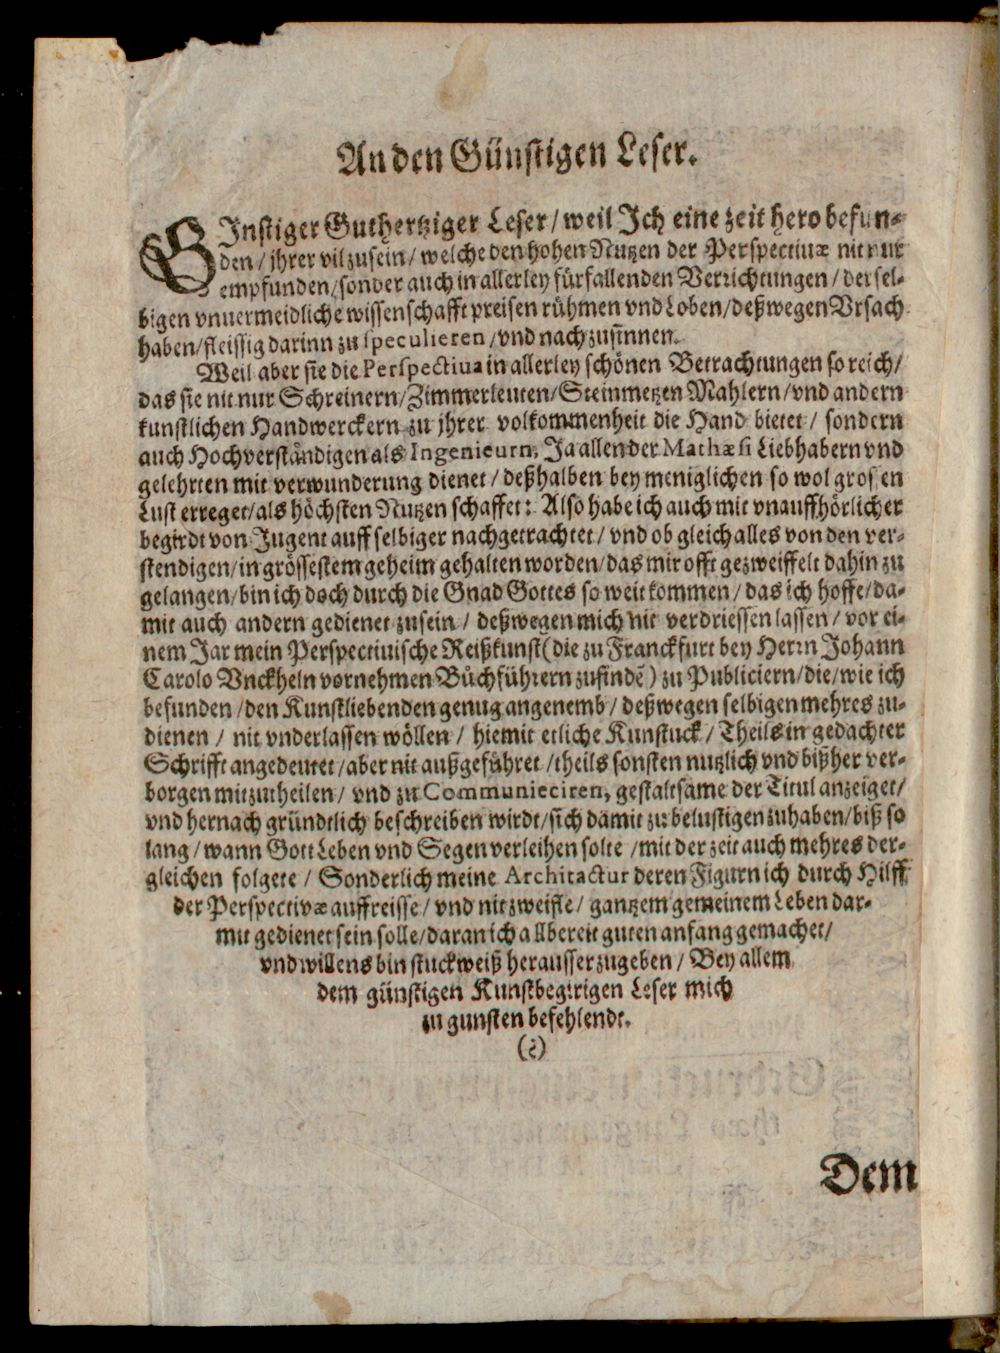 An den Günstigen Leser.
GInstiger Guthertziger Leser / weil Ich eine zeit hero befun-
den / jhrer vil zusein / welche den hohen Nutzen der Perspectiuæ nit nur
empfunden / sonder auch in allerley fürfallenden Verrichtungen / dersel-
bigen vnuermeidliche wissenschafft preisen rühmen vnd Loben / deßwegen Vrsach
haben / fleissig darinn zu speculieren / vnd nachzusinnen.
Weil aber sie die Perspectiua in allerley schönen Betrachtungen so reich /
das sie nit nur Schreinern / Zimmerleuten / Steinmetzen Mahlern / vnd andern
kunstlichen Handwerckern zu jhrer volkommenheit die Hand bietet / sondern
auch Hochverständigen als Ingenieurn, Ja allen der Mathæsi Liebhabern vnd
gelehrten mit verwunderung dienet / deßhalben bey meniglichen so wol grossen
Lust erreget / als höchsten Nutzen schaffet: Also habe ich auch mit vnauffhörlicher
begirdt von Jugent auff selbiger nachgetrachtet / vnd ob gleich alles von den ver-
stendigen / in grössestem geheim gehalten worden / das mir offt gezweiffelt dahin zu
gelangen / bin ich doch durch die Gnad Gottes so weit kommen / das ich hoffe / da-
mit auch andern gedienet zusein / deßwegen mich nit verdriessen lassen / vor ei-
nem Jar mein Perspectiuische Reißkunst (die zu Franckfurt bey Herrn Johann
Carolo Vnckheln vornehmen Buchführern zufindē) zu Publiciern / die / wie ich
befunden / den Kunstliebenden genug angenemb / deßwegen selbigen mehres zu-
dienen / nit vnderlassen wöllen / hiemit etliche Kunstuck / Theils in gedachter
Schrifft angedeutet / aber nit außgeführet / theils sonsten nutzlich vnd bißher ver-
borgen mitzutheilen / vnd zu Communieciren, gestaltsame der Titul anzeiget /
vnd hernach gründtlich beschreiben wirdt / sich damit zu belustigen zuhaben / biß so
lang / wann Gott Leben vnd Segen verleihen solte / mit der zeit auch mehres der-
gleichen folgete / Sonderlich meine Architactur deren Figurn ich durch Hilff
der Perspectivæ auffreisse / vnd nit zweifle / gantzem gemeinem Leben dar-
mit gedienet sein solle / daran ich allbereit guten anfang gemachet /
vnd willens bin stuckweiß herausser zugeben / Bey allem
dem günstigen Kunstbegirigen Leser mich
zu gunsten befehlendt.
Dem